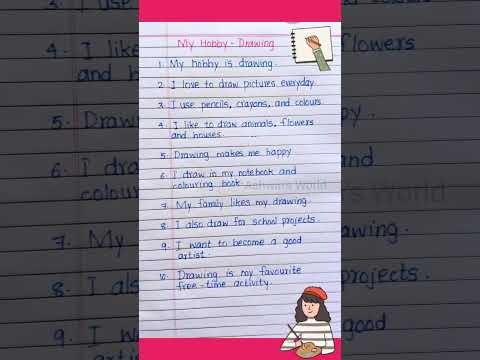 My Hobby - Drawing
1. My hobby is drawing.
2. I love to draw pictures everyday.
3. I use pencils, crayons, and colours.
4. I like to draw animals, flowers
and houses.
5. Drawing makes me happy.
6. I draw in my notebook and
colouring book.
7. My family likes my drawing.
8. I also draw for school projects.
9. I want to become a good
artist.
10. Drawing is my favourite
free-time activity.
3. I use
4. I like
flowers
and ho
5. Drawi
6. I dra
and
colour
World
7. My
8. I als
projects.
9. I wa
good